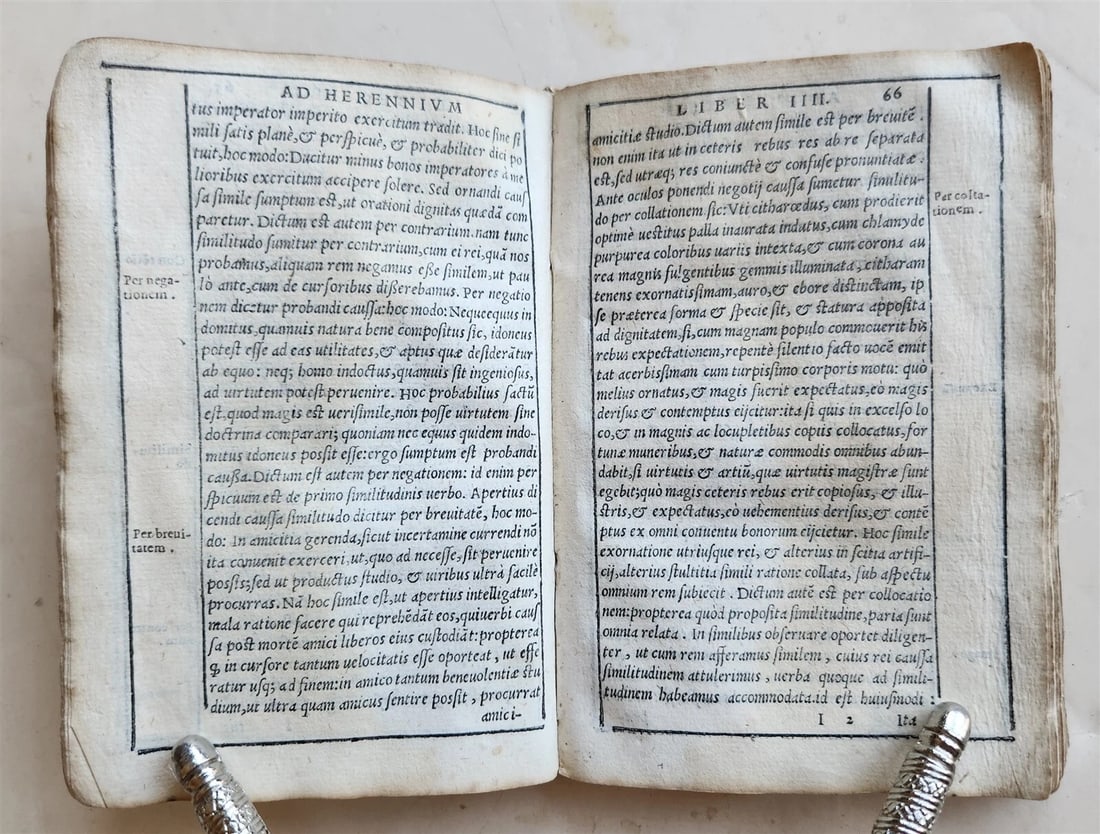 AD HERENNIVM
tus imperator imperito exercitum tradit. Hoc sine si
mili satis planè, & perspicuè, & probabiliter dici po
tuit, hoc modo: Ducitur minus bonos imperatores à me
lioribus exercitum accipere solere. Sed ornandi cauſ
ſa simile sumptum est, ut orationi dignitas quædã com
paretur. Dictum est autem per contrarium. nam tunc
similitudo sumitur per contrarium, cum ei rei, quã nos
probamus, aliquam rem negamus esse similem, ut pau
lò ante, cum de cursoribus disserebamus. Per negatio
nem dicetur probandi caussa: hoc modo: Neque equus in
domitus, quamuis natura bene compositus sic, idoneus
potest esse ad eas utilitates, & aptus quæ desiderãtur
ab equo: neq; homo indoctus, quamuis sit ingeniosus,
ad uirtutem potest peruenire. Hoc probabilius factũ
est, quod magis est uerisimile, nõn posse uirtutem sine
doctrina comparari; quoniam nec equus quidem indo-
mitus idoneus possit esse: ergo sumptum est probandi
caussa. Dictum est autem per negationem: id enim per
spicuum est de primo similitudinis uerbo. Apertius di
cendi caussa similitudo dicitur per breuitatẽ, hoc mo-
do: In amicitia gerenda, sicut in certamine currendi nõ
ita conuenit exerceri, ut, quo ad necesse, sit peruenire
possis; sed ut productus studio, & uiribus ultrà facilè
procurras. Nã hoc simile est, ut apertius intelligatur,
mala ratione facere qui reprehẽdãt eos, qui uerbi cauſ
ſa post mortẽ amici liberos eius custodiãt: propterea
ꝙ in cursore tantum uelocitatis esse oporteat, ut effe
ratur usq; ad finem: in amico tantum beneuolentiæ stu
dium, ut ultra quam amicus sentire possit, procurrat
amici-
Per nega-
tionem.
Per breui-
tatem.
LIBER IIII. 66
amicitiæ studio. Dictum autem simile est per breuitẽ.
non enim ita ut in ceteris rebus res ab re separata
est, sed utræq; res coniunctè & confuse pronuntiatæ:
Ante oculos ponendi negotij caussa sumetur similitu-
do per collationem sic: Vti citharœdus, cum prodierit
optimè uestitus palla inaurata indutus, cum chlamyde
purpurea coloribus uariis intexta, & cum corona au
rea magnis fulgentibus gemmis illuminata, citharam
tenens exornatissimam, auro, & ebore distinctam, ip
se præterea forma & specie sit, & statura apposita
ad dignitatem, si, cum magnam populo commouerit his
rebus expectationem, repentè silentio facto uocẽ emit
tat acerbissimam cum turpissimo corporis motu: quò
melius ornatus, & magis fuerit expectatus, eò magis
derisus & contemptus eijcitur: ita si quis in excelso lo
co, & in magnis ac locupletibus copiis collocatus, for
tunæ muneribus, & naturæ commodis omnibus abun-
dabit, si uirtutis & artiũ, quæ uirtutis magistræ sunt
egebit; quò magis ceteris rebus erit copiosus, & illu-
stris, & expectatus, eò uehementius derisus, & contẽ
ptus ex omni conuentu bonorum eijcietur. Hoc simile
exornatione utriusque rei, & alterius inscitia artifi-
cij, alterius stultitia simili ratione collata, sub aspectu
omnium rem subiecit. Dictum autẽ est per collocatio
nem: propterea quòd proposita similitudine, paria sunt
omnia relata. In similibus obseruare oportet diligen-
ter, ut cum rem afferamus similem, cuius rei caussa
similitudinem attulerimus, uerba quoque ad simili-
tudinem habeamus accommodata. id est huiusmodi:
I 2 Ita
Per colla-
tionem.